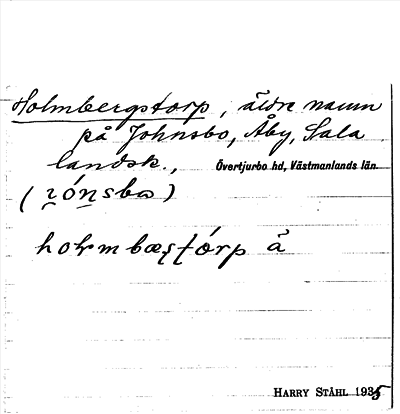 Holmbergstorp, äldre namn
på Johnsbo, Åby, Sala
landsk., Övertjurbo hd, Västmanlands län.
(ɿónsbω)
holmbæʂtórp ä
HARRY STÅHL 1935